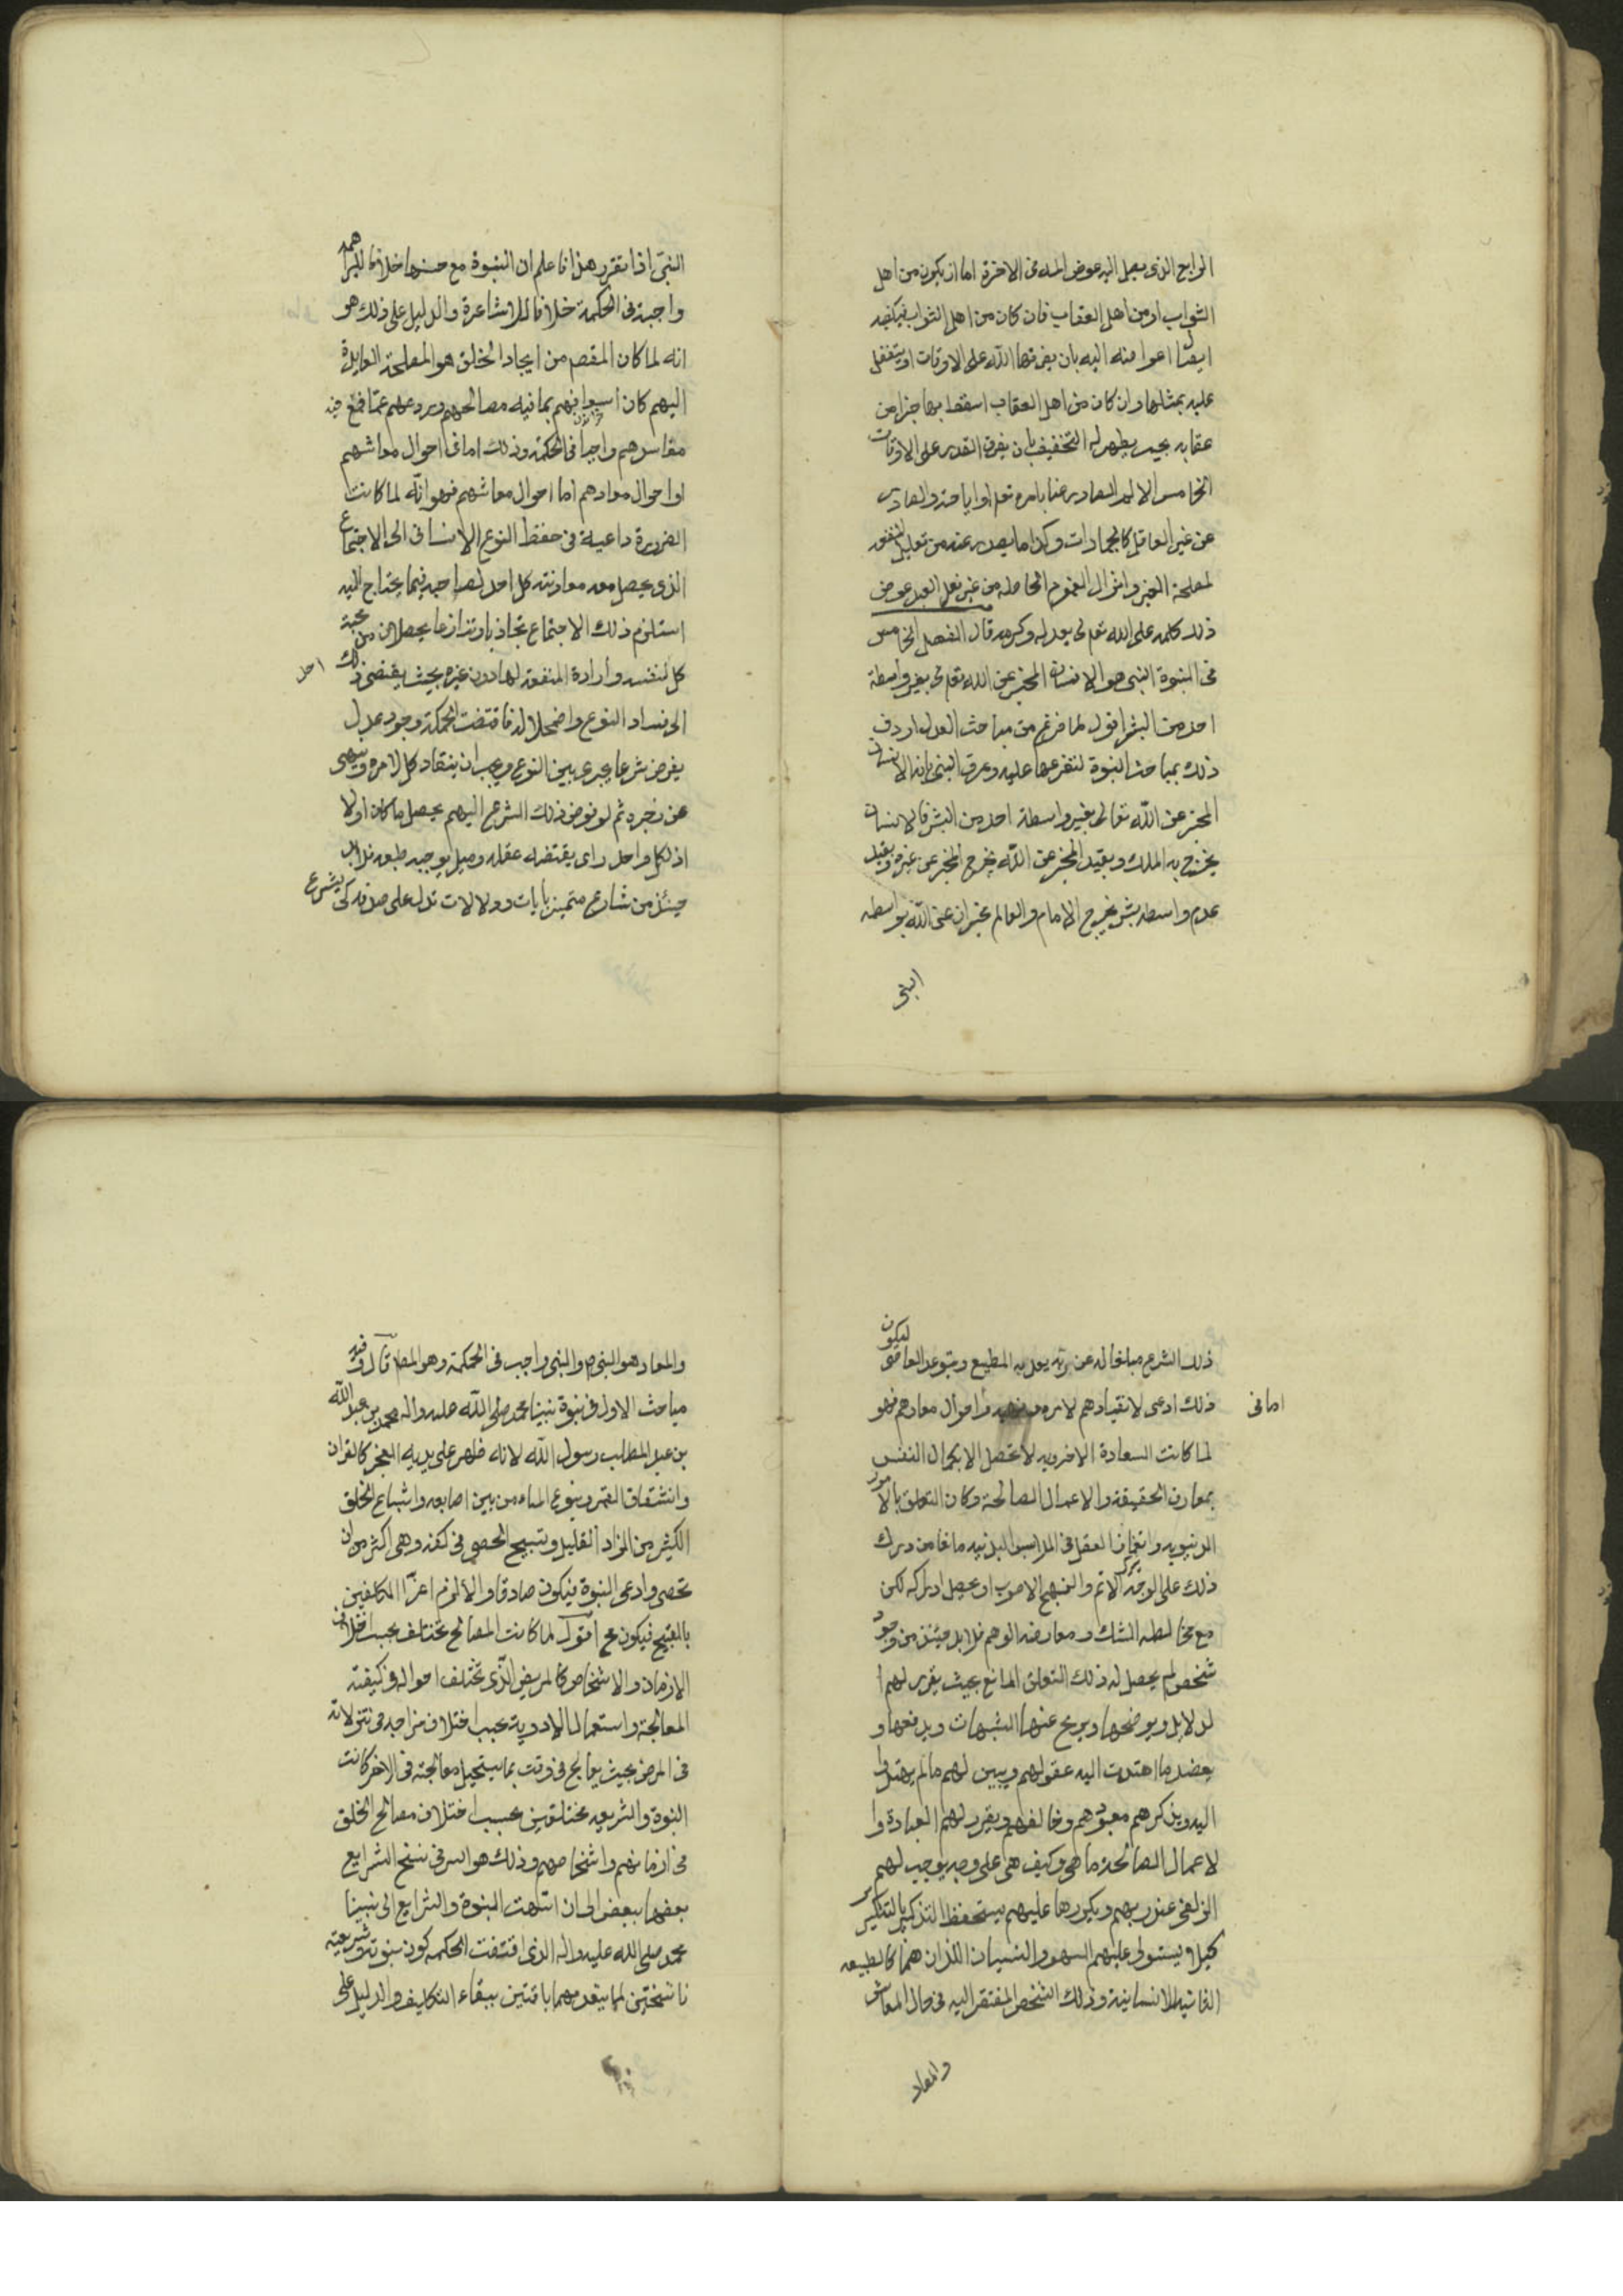 الرابع الذى يصل اليه عوض المه فى الاخرة اما ان يكون من اهل
الثواب او من اهل العقاب فان كان من اهل الثواب فيكفيه
ايصال اعواضه اليه بان يفرقها الله على الاوقات او يتفضل
عليه بمثلها وان كان من اهل العقاب اسقط بها جزا من
عقابه بحيث يظهر له التخفيف بان يفرق القدر على الاوقات
الخامس الالم الصادر عنا بامره تعم او اباحته والصادر
عن غير العاقل كالجمادات وكذا ما يصدر عنه من تفويت المنفعة
لمصلحة الغير وانزال الغموم الحاصلة من غير فعل العبد عوض
ذلك كله على الله تعم لى بعدله وكرمه قال الفصل الخامس
فى النبوة النبى هو الانسان المخبر عن الله تعم لى بغير واسطة
احد من البشر اقول لما فرغ من مباحث العدل اردف
ذلك بمباحث النبوة لتفرعها عليه وعرف النبى بانه الانسان
المخبر عن الله تعالى بغير واسطة احد من البشر فالانسان
يخرج به الملك وبقيد المخبر عن الله يخرج المخبر عن غيره وبقيد
عدم واسطه بشر يخرج الامام والعالم مخبران عن الله بواسطه
النبى
النبى اذا تقرر هذا فاعلم ان النبوة مع حسنها خلافا للبراهمه
واجبة فى الحكمة خلافا للاشاعرة والدليل على ذلك هو
انه لما كان المقصم من ايجاد الخلق هو المصلحة العايدة
اليهم كان اسعافهم بما فيه مصالحهم وردعهم عما فيه
مفاسدهم واجبا فى الحكمة وذلك اما فى احوال معاشهم
او احوال معادهم اما احوال معاشهم فهو انه لما كانت
الضرورة داعية فى حفظ النوع الانسانى الى الاجتماع
الذى يحصل معه معاونة كل احد لصاحبه فيما يحتاج اليه
استلزم ذلك الاجتماع تجاذبا وتنازعا يحصلان من محبة
كل لنفسه وارادة المنفعة لها دون غيره بحيث يفضى ذلك
احل
الى فساد النوع واضمحلاله فاقتضت الحكمة وجود عدل
يفرض شرعا يجرى بين النوع ويجب ان ينقاد كل لامره وينتهى
عن زجره ثم لو فوض ذلك الشرع اليهم يحصل ما كان اولا
اذ لكل واحد راى يقتضه عقله وميل يوجبه طبعه فلا بد
حينئذ من شارع متميز بايات ودلالات تدل على صدقه كى يشرع
ذلك الشرع مبلغا له عن ربه يعد به المطيع ويتوعد العاصى ليكون
ذلك ادعى لانقيادهم لامره ونهيه واحوال معادهم فهو
اما فى
لما كانت السعادة الاخرويه لا تحصل الا بكمال النفس
بمعارف الحقيقة والاعمال الصالحة وكان التعلق بالامور
الدنيويه وانغمار العقل فى الملابس البدنيه مانعا من درك
ذلك على الوجه الاتم والنهج الاصوب او يحصل ادراكه لكن
مع مخالطه الشك ومعارضه الوهم فلا بد حينئذ من وجود
شخص لم يحصل له ذلك التعلق المانع بحيث يقرر لهم ا
لدلايل ويوضحها ويزيح عنها الشبهات ويدفعها و
يعضد ما اهتدت اليه عقولهم ويبين لهم ما لم يهتدوا
اليه ويذكرهم معبودهم وخالقهم ويقرر لهم العبادة وا
لاعمال الصالحة ما هى وكيف هى على وجه يوجب لهم
الزلفى عند ربهم ويكررها عليهم يستحفظ التذكير بالتكرير
كيلا يستولى عليهم السهو والنسيان اللذان هما كالطبيعه
الثانيه للانسانية وذلك الشخص المفتقر اليه فى حال المعاش
والمعاد
والمعاد هو النبى والنبى واجب فى الحكمة وهو المط قال وفيه
مباحث الاول فى نبوة نبينا محمد صلى الله عليه واله محمد بن عبد الله
بن عبد المطلب رسول الله لانه ظهر على يديه المعجز كالقران
وانشقاق القمر ونبوع الماء من بين اصابعه واشباع الخلق
الكثير من الزاد القليل وتسبيح الحصى فى كفه وهى اكثر من ان
تحصى وادعى النبوة فيكون صادقا والا لزم اغراء المكلفين
بالقبيح فيكون مح اقول لما كانت المصالح تختلف بحسب اختلاف
الازمان والاشخاص كالمريض الذى تختلف احواله فى كيفية
المعالجة واستعمال الادوية بحسب اختلاف مزاجه فى تنزلاته
فى المرض بحيث يعالج فى وقت بما يستحيل معالجته فى الاخر كانت
النبوة والشريعه مختلفتين بحسب اختلاف مصالح الخلق
فى ازمانهم واشخاصهم وذلك هو السر فى نسخ الشرايع
بعضها ببعض الى ان انتهت النبوة والشرايع الى نبينا
محمد صلى الله عليه واله الذى اقتضت الحكمه كون نبوته وشريعته
ناسختين لما يتقدمهما باقيتين ببقاء التكليف والدليل على